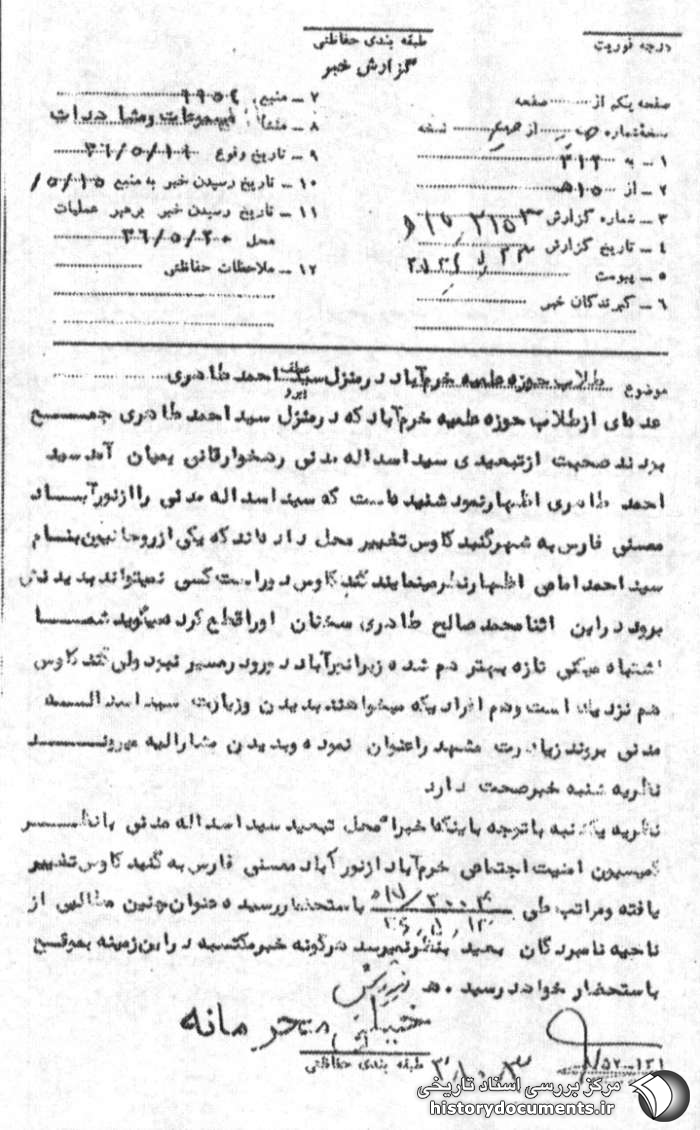 طبقه بندی حفاظتی
درجه فوریت
گزارش خبر
صفحه یکم از صفحه
نسخه شماره از نسخه
۱ ـ به ۳۱۲
۲ ـ از ۱۵ هـ
۳ ـ شماره گزارش
۴ ـ تاریخ گزارش
۵ ـ پیوست
۶ ـ گیرندگان خبر
۷ ـ منبع ۹۹۵۴
۸ ـ منشأ مسموعات ومشاهدات
۹ ـ تاریخ وقوع ۳۶/۵/۱۹
۱۰ ـ تاریخ رسیدن خبر به منبع
۱۱ ـ تاریخ رسیدن خبر برهبر عملیات
محل ۳۶/۵/۲۰
۱۲ ـ ملاحظات حفاظتی
موضوع طلاب حوزه علمیه خرم‌آباد در منزل سید احمد طاهری
عده‌ای از طلاب حوزه علمیه خرم‌آباد که در منزل سید احمد طاهری جمع
بودند صحبت از تبعیدی سید اسداله مدنی بمیان آمد سید
احمد طاهری اظهار نمود شنیده است که سید اسداله مدنی را از نورآباد
ممسنی فارس به شهر گنبد کاوس تغییر محل داده‌اند که یکی از روحانیین بنام
سید احمد امامی اظهار نظر مینماید گنبد کاوس دور است کسی نمیتواند بدیدنش
برود در این اثنا محمد صالح طاهری سخنان او را قطع کرد میگوید شما
اشتباه میکنی تازه بهتر هم شده زیرا نورآباد دور و در مسیر نبود ولی گنبد کاوس
هم نزدیک است و هم افرادیکه میخواهند بدیدن وزیارت سید اسداله
مدنی بروند زیارت مشهد را عنوان نموده و بدیدن مشارالیه میروند
نظریه شنبه خبر صحت دارد
نظریه یکشنبه با توجه باینکه اخیرا محل تبعید سید اسداله مدنی با نظر
کمیسیون امنیت اجتماعی خرم‌آباد از نورآباد ممسنی فارس به گنبد کاوس تغییر
یافته و مراتب طی باستحضار رسیده عنوان چنین مطالبی از
ناحیه نامبردگان بعید بنظر نمیرسد هرگونه خبر مکتسبه در این زمینه بموقع
باستحضار خواهد رسید . هـ
خیلی محرمانه
طبقه بندی حفاظتی
۵۲-۱۲۱
مرکز بررسی اسناد تاریخی
historydocuments.ir